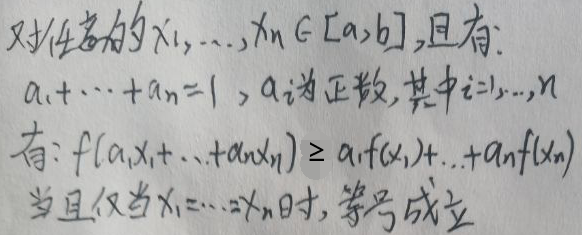 对任意的x₁,...,xₙ∈[a,b],且有:
a₁+...+aₙ=1,aᵢ为正数,其中i=1,...,n
有:f(a₁x₁+...+aₙxₙ)≥a₁f(x₁)+...+aₙf(xₙ)
当且仅当x₁=...=xₙ时,等号成立